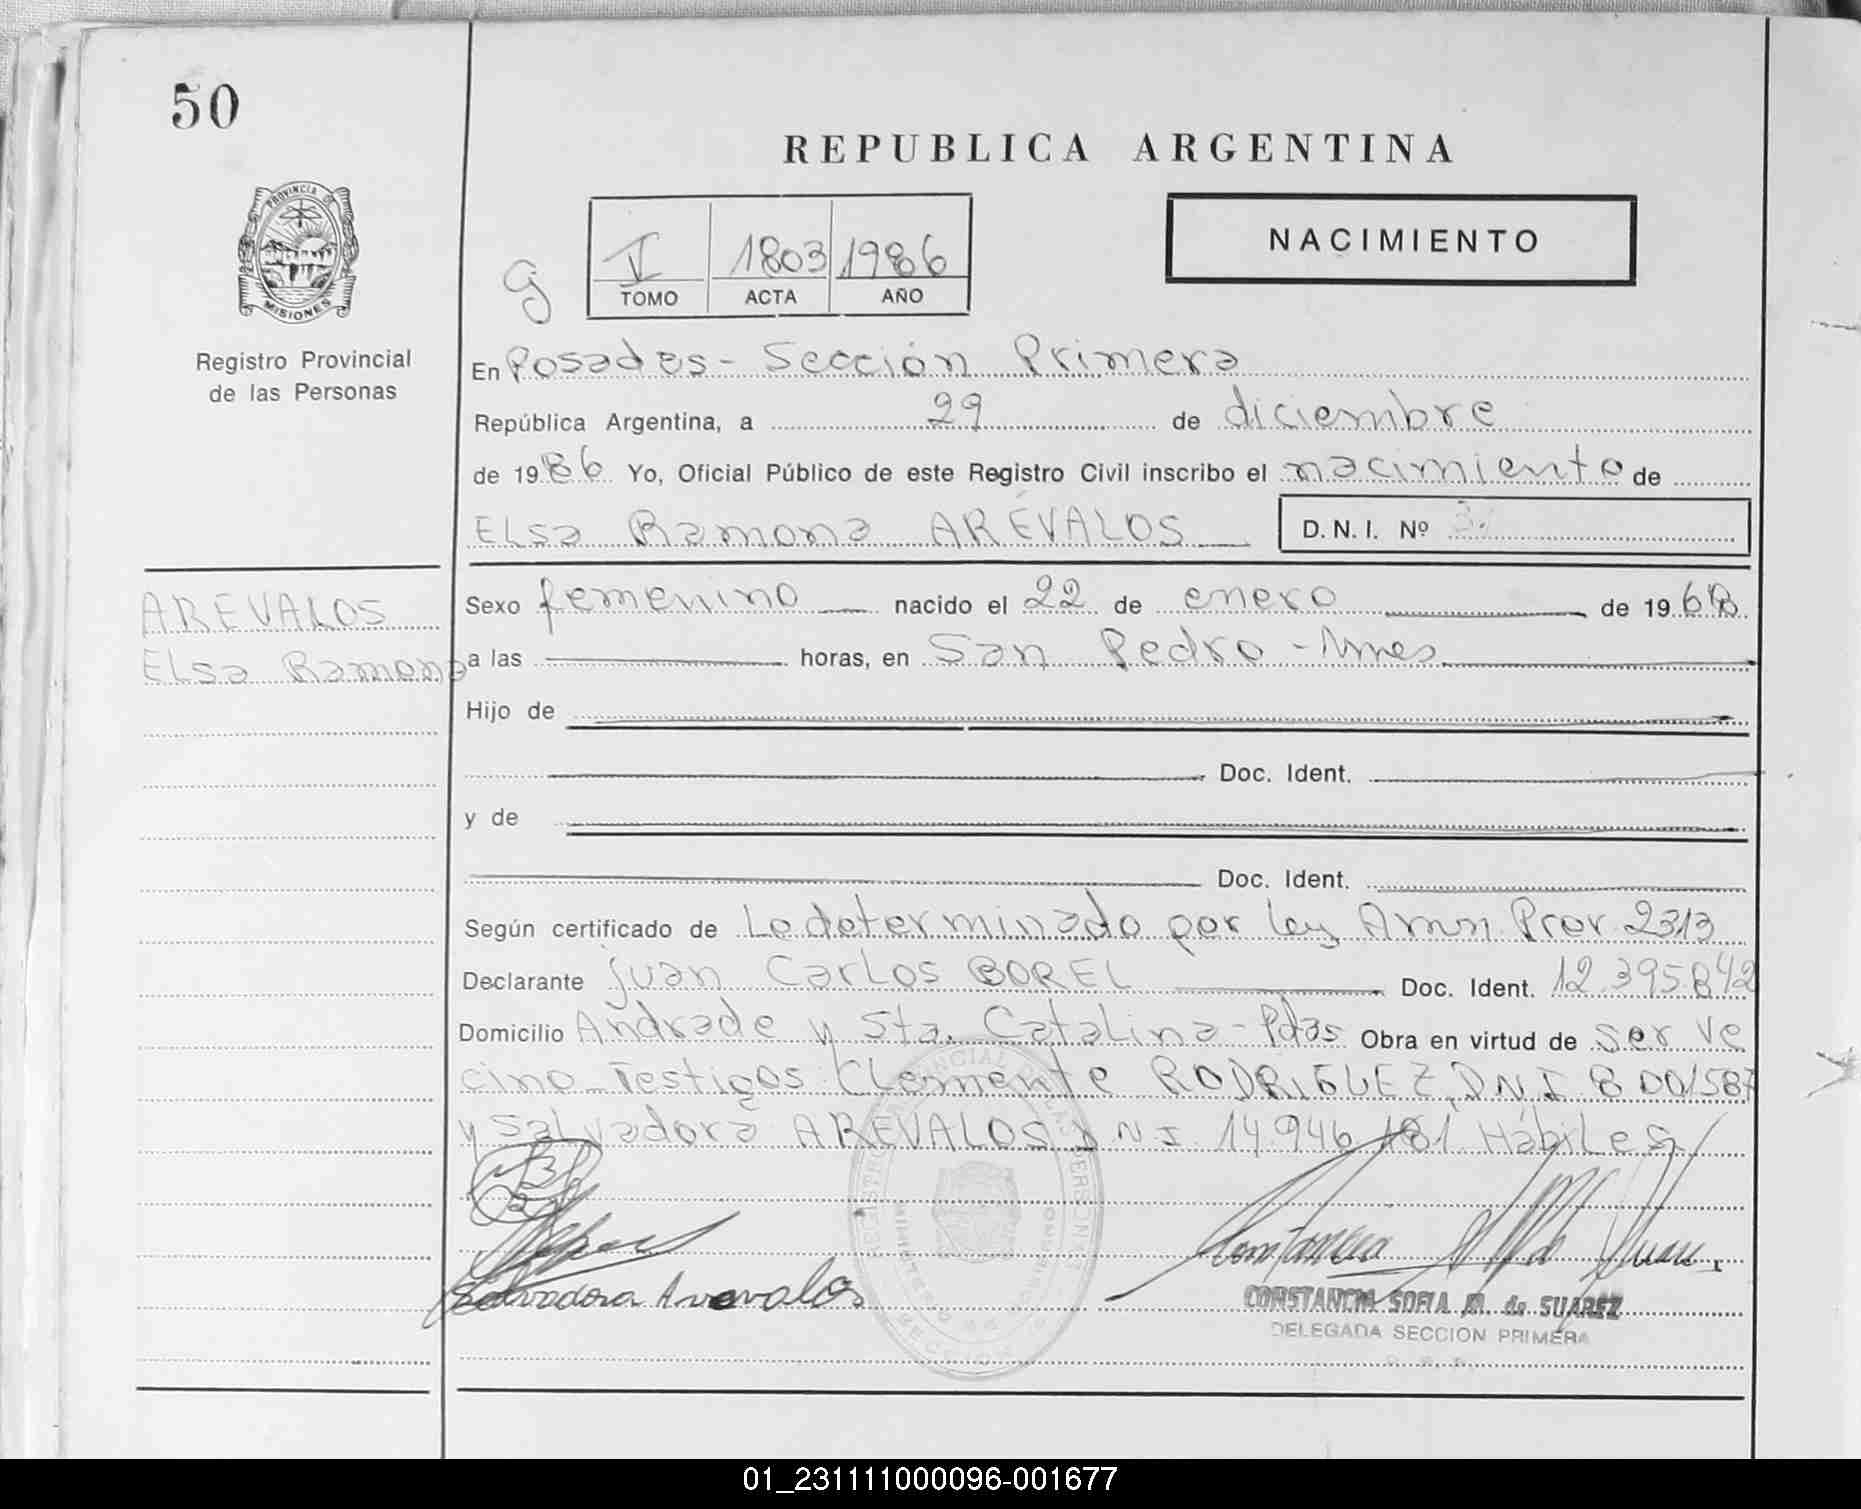 50
REPUBLICA ARGENTINA
PROVINCIA DE
MISIONES
Registro Provincial
de las Personas
g
1803 1986
TOMO ACTA AÑO
NACIMIENTO
En Posadas - Sección Primera
República Argentina, a 29 de diciembre
de 1986 Yo, Oficial Público de este Registro Civil inscribo el nacimiento de
ELsa Ramona ARÉVALOS
D. N. I. Nº 3.
AREVALOS
ELsa Ramona
Sexo femenino nacido el 22 de enero de 1968
a las horas, en San Pedro - Mnes
Hijo de
Doc. Ident.
y de
Doc. Ident.
Según certificado de Lo determinado por ley Amn Prov 2313
Declarante juan Carlos BOREL Doc. Ident. 12.395.842
Domicilio Andrade y Sta. Catalina - Pdas Obra en virtud de ser ve
cino Testigos: CLemente RODRIGUEZ, DNI 8 001587
y Salvadora AREVALOS DNI 14.946.181 HábiLes
Salvadora Arevalos
CONSTANCIA SOFIA M. de SUAREZ
DELEGADA SECCION PRIMERA
01_231111000096-001677